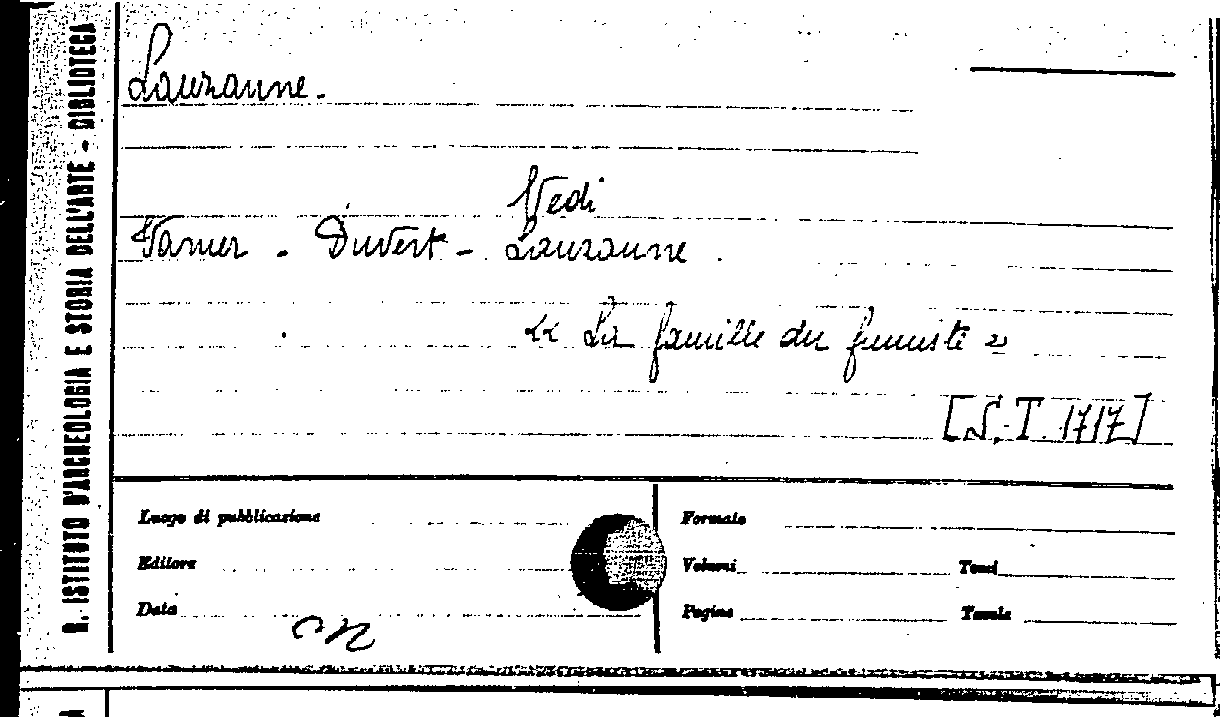 R. ISTITUTO D'ARCHEOLOGIA E STORIA DELL'ARTE - BIBLIOTECA
Lauzanne.
Vedi
Varner - Duvert - Lauzanne.
« La famille du fumiste »
[S. T. 1717]
Luogo di pubblicazione
Editore
Data
Formato
Volumi Tomi
Pagine Tavole